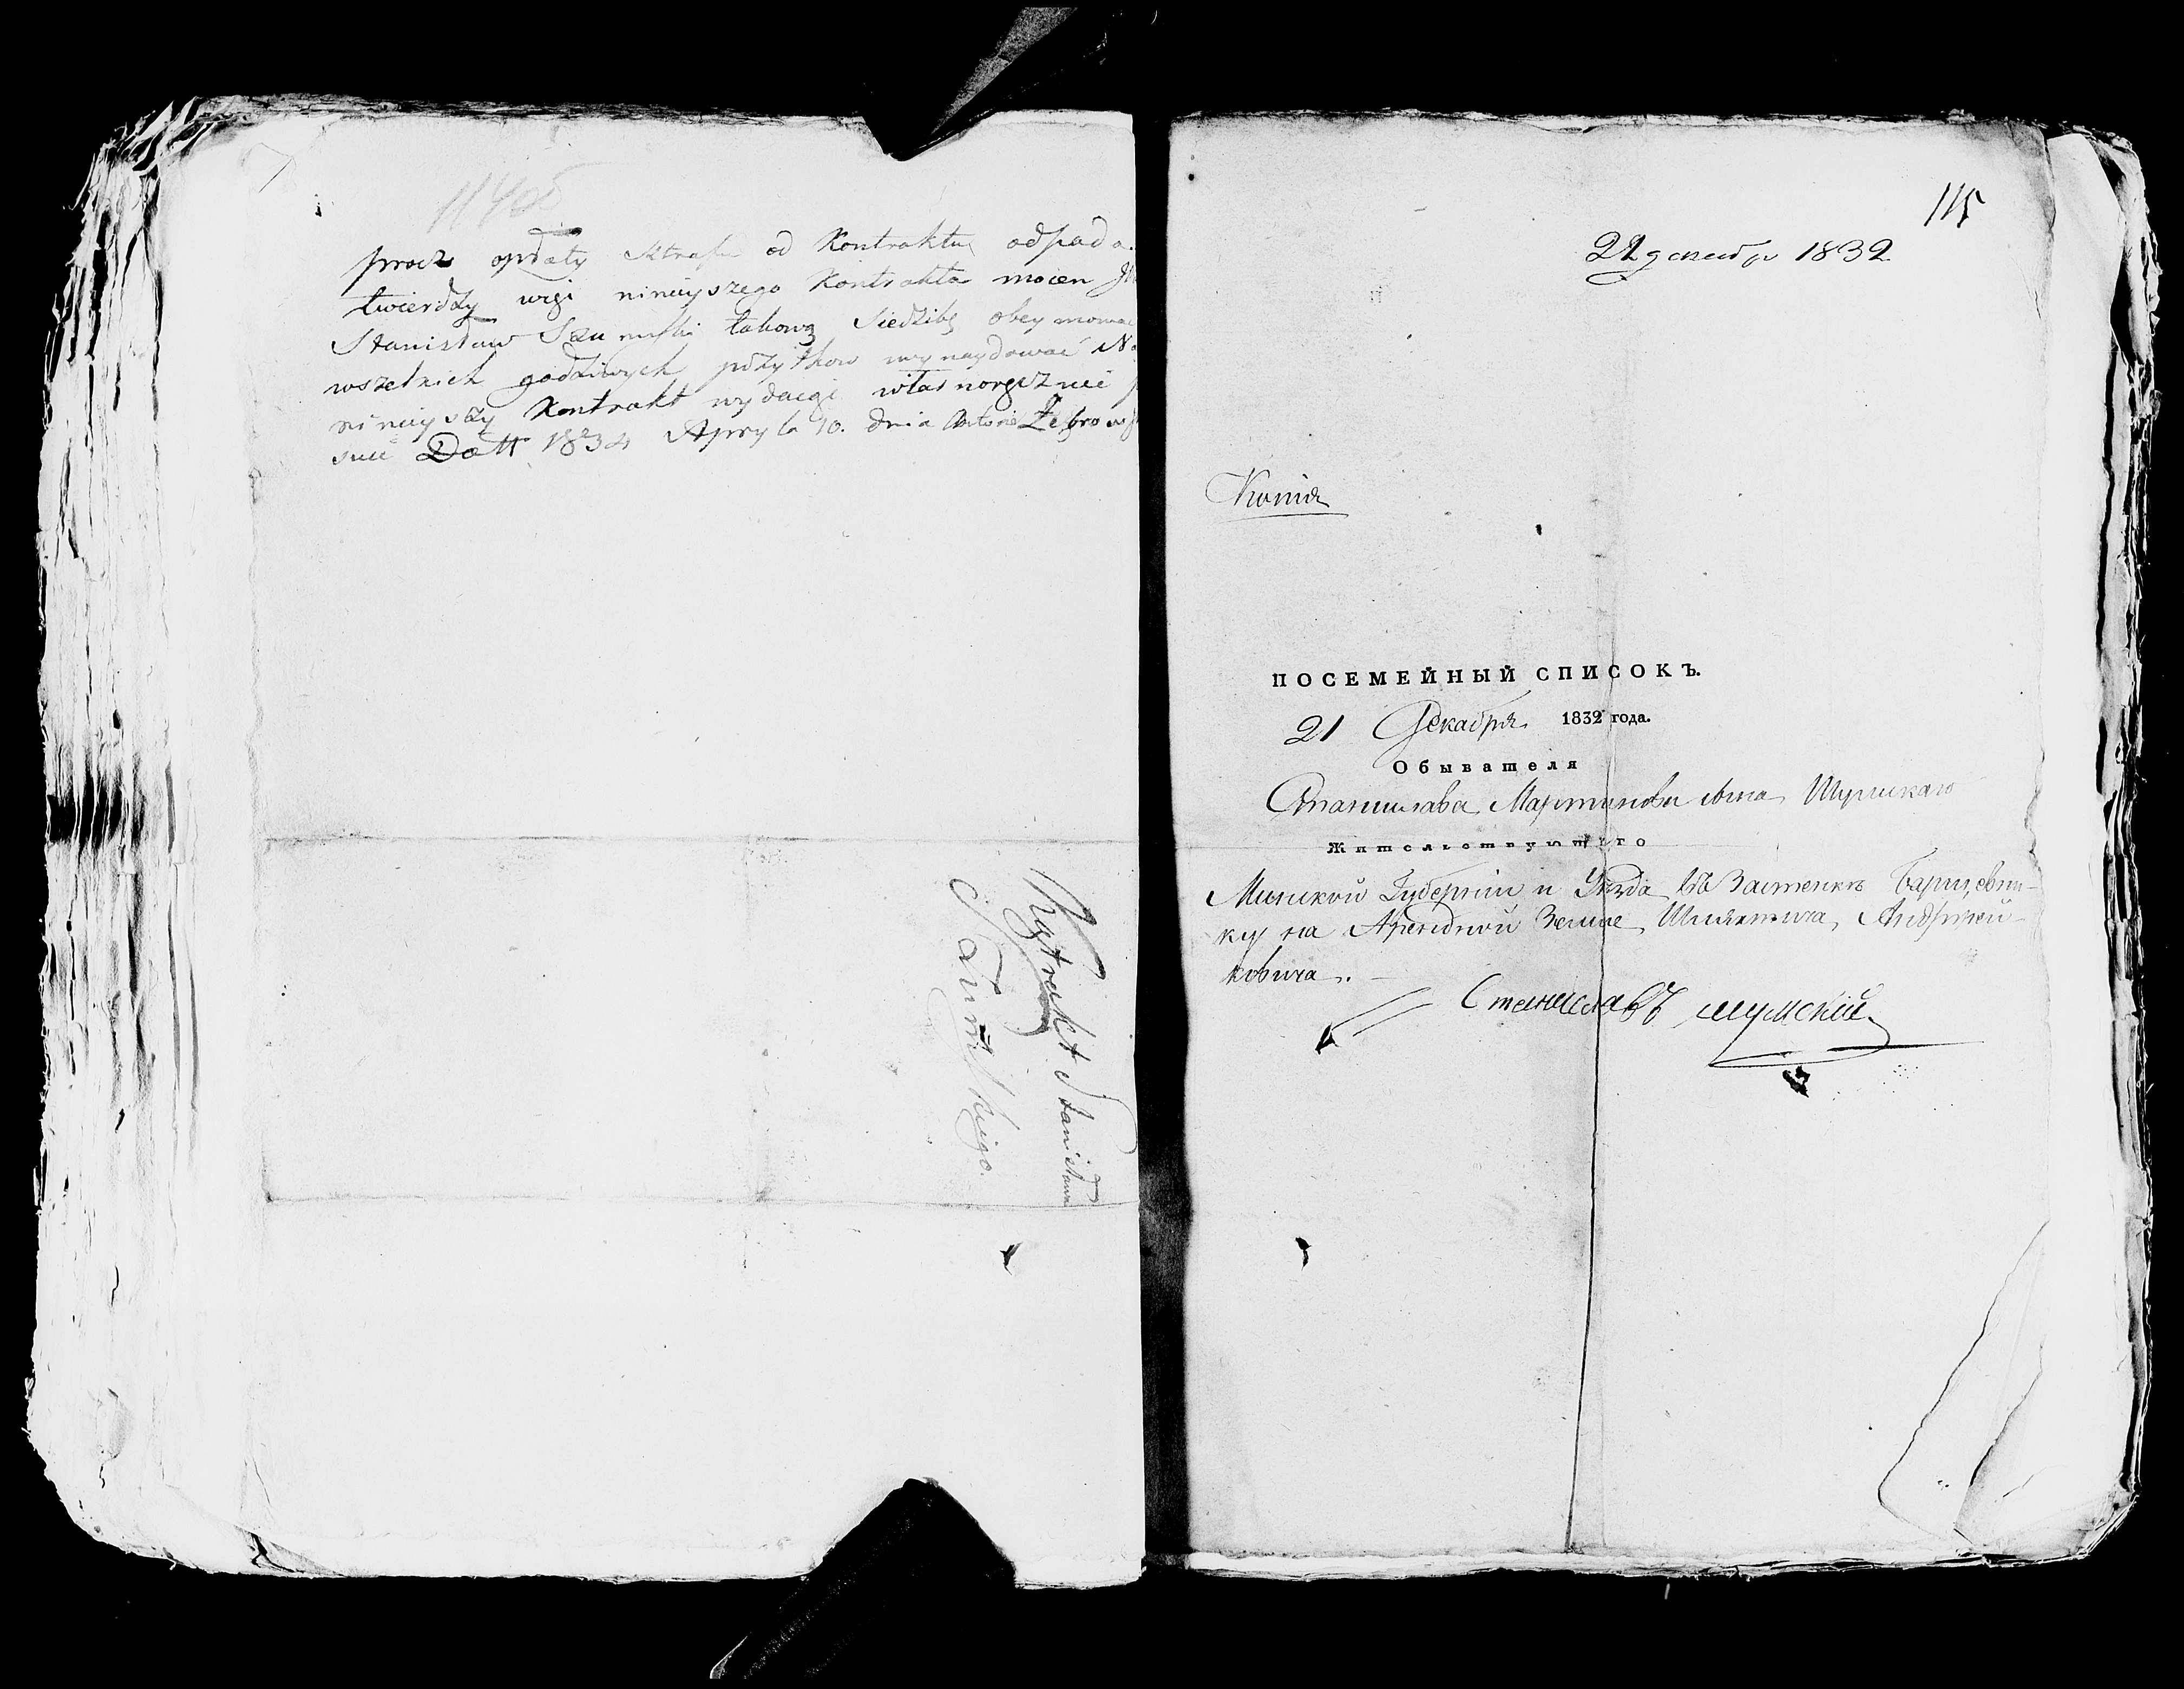 114об
procz opłaty Strafu od Kontraktu odpada.
twierdzy więc ninieyszego Kontrakta mocen
Stanisław Szumski takową Siedzibę obeymować
wszelkich godziwych pożytkow wynaydować
ninieyszy Kontrakt wydaige własnoręcznie
suie Datt 1834 Apryla 10. dnia Antoni Żebrows
Kątrakt Stanisława
Szumskiego.
115
22 декабр 1832
Копія
ПОСЕМЕЙНЫЙ СПИСОКЪ.
21 Декабря 1832 года.
Обывателя
Станислава Мартинова сына Шумскаго
Жительствующаго
Минской Губерніи и Уезда въ Застенкѣ Барцевщи-
ку на Арендной Земле Шляхтича Андржей-
ковича.
Станиславъ шумскій